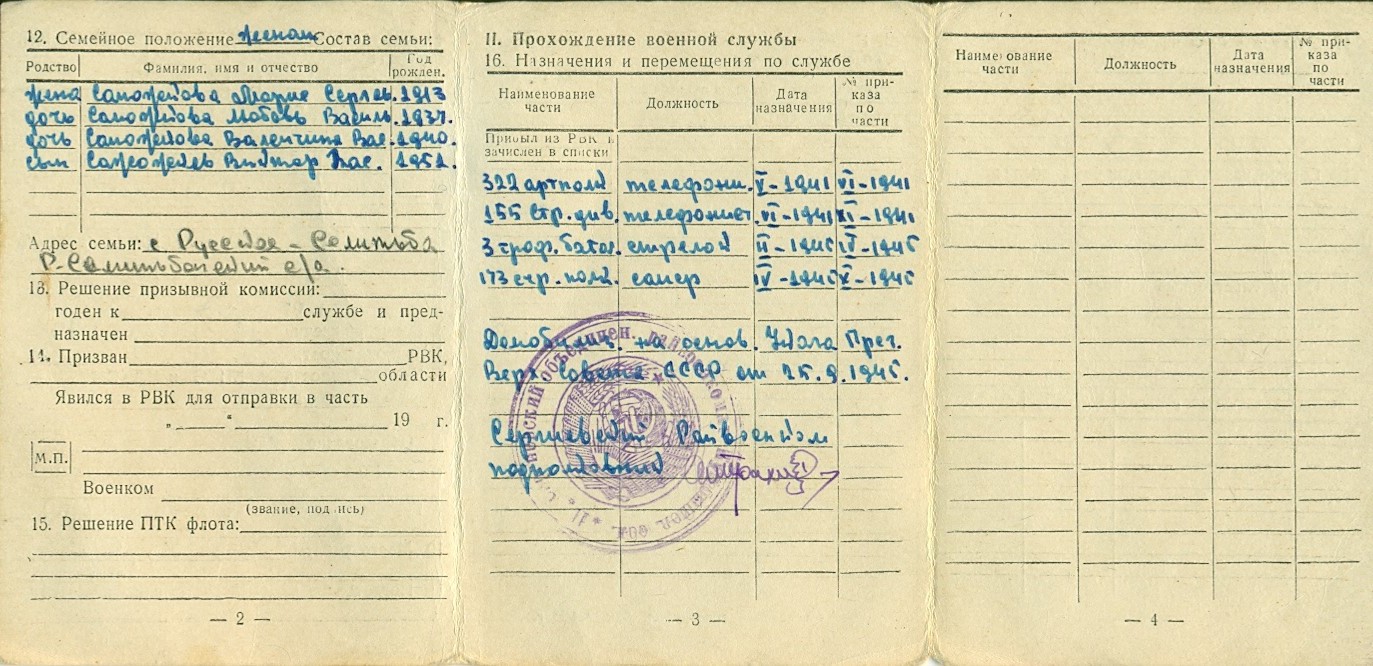 12. Семейное положение женат Состав семьи:
Родство Фамилия, имя и отчество Год рожден.
жена Мария Сергеев. 1913
дочь Любовь Василь. 1937.
дочь Валентина Вас. 1940.
сын Виктор Вас. 1951.
Адрес семьи: с Русская-Селитьба
Р-Селитьбенский с/с.
13. Решение призывной комиссии:
годен к службе и пред-
назначен
14. Призван РВК,
области
Явился в РВК для отправки в часть
„ “ 19 г.
М.П.
Военком
(звание, подпись)
15. Решение ПТК флота:
— 2 —
II. Прохождение военной службы
16. Назначения и перемещения по службе
Наименование части Должность Дата назначения № при-каза по части
Прибыл из РВК и
зачислен в списки
322 артполк телефони. V-1941 VI-1941
155 стр. див. телефонист. VI-1941 XI-1941
3 стрелок II-1945 IV-1945
173 стр. полк. сапер IV-1945 X-1945
Демобилиз. на основ. Указа През.
Верх Совета СССР от 25.9.1945.
Сергиевский Райвоенком
подполковник
— 3 —
Наименование части Должность Дата назначения № при-каза по части
— 4 —